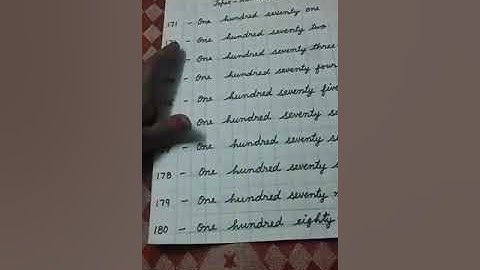 171 - One hundred seventy one
- One hundred seventy two
- One hundred seventy three
- One hundred seventy four
- One hundred seventy five
- One hundred seventy
- One hundred seventy
178 - One hundred seventy
179 - One hundred seventy
180 - One hundred eighty